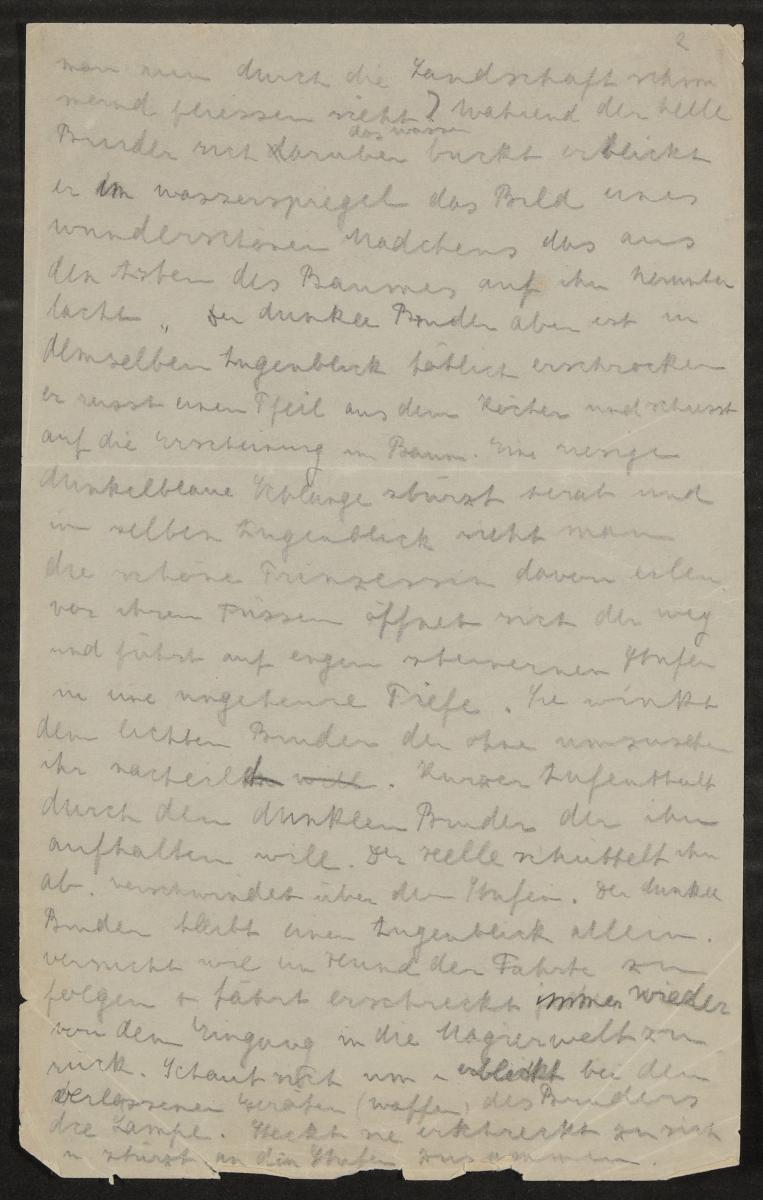 2
man nun durch die Landschaft schim
mernd fliessen sieht? Während der helle
das wasser
Bruder sich darüber bückt erblickt
er im wasserspiegel das Bild eines
wunderschönen Mädchens das aus
den Ästen des Baumes auf ihn herunter
lacht. Der dunkle Bruder aber ist in
demselben Augenblick tötlich erschrocken
er reisst einen Pfeil aus dem Köcher und schiesst
auf die Erscheinung im Baum. Eine riesige
dunkelblaue Schlange stürzt herab und
im selben Augenblick sieht man
die schöne Prinzessin davon eilen
vor ihren Füssen öffnet sich der weg
und führt auf engen steinernen Stufen
in eine ungeheure Tiefe. Sie winkt
dem lichten Bruder der ohne umzusehen
ihr nacheilt will. Kurzer Aufenthalt
durch den dunklen Bruder der ihn
aufhalten will. Der Helle schüttelt ihn
ab. verschwindet über den Stufen. Der dunkle
Bruder bleibt einen Augenblick allein.
versucht wie ein Hund der Fährte zu
folgen + fährt erschreckt immer wieder
von dem Eingang in die Magierwelt zu
rück. Schaut sich um u erblickt bei den
verlassenen Geräten (waffen) des Bruders
die Lampe. Steckt sie erschreckt zu sich
u stürzt an den Stufen zusammen.